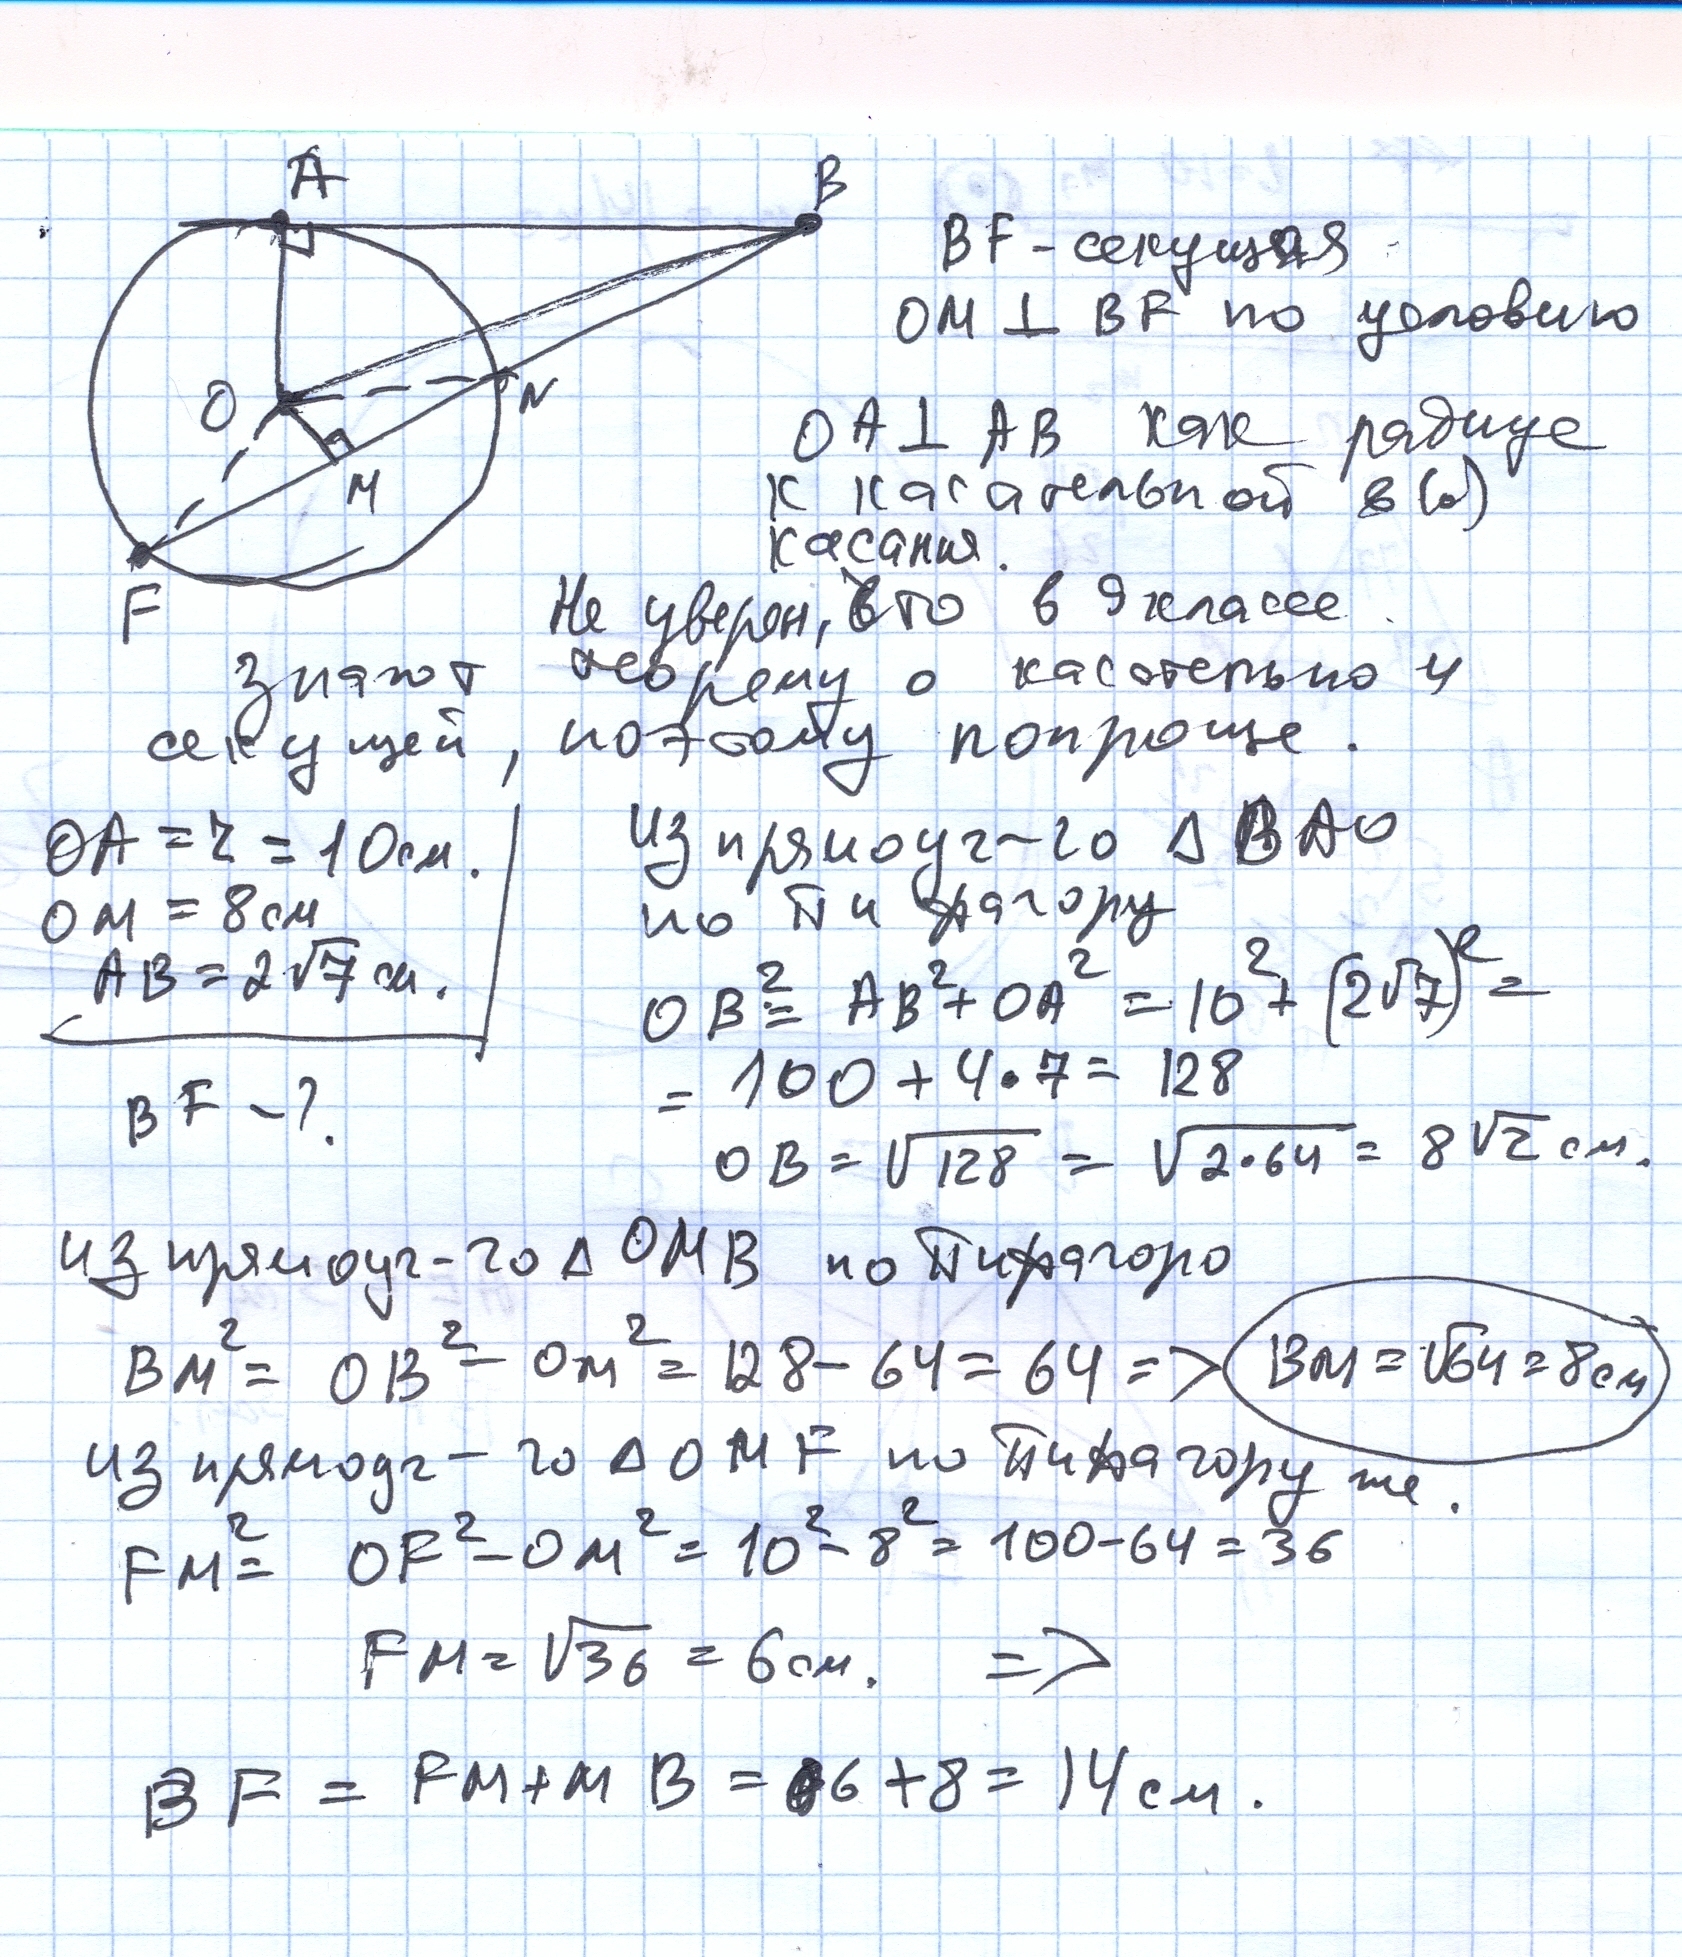 A
B
O
N
M
F
BF - секущая
OM ⊥ BF по условию
OA ⊥ AB как радиус
к касательной в (·)
касания.
Не уверен, что в 9 классе
знают теорему о касательно и
секущей, поэтому попроще.
OA = r = 10 см.
OM = 8 см
AB = 2√7 см.
BF - ?
Из прямоуг-го Δ BAO
по Пифагору
OB² = AB² + OA² = 10² + (2√7)² =
= 100 + 4·7 = 128
OB = √128 = √2·64 = 8√2 см.
Из прямоуг-го Δ OMB по Пифагоро
BM² = OB² - OM² = 128 - 64 = 64 => BM = √64 = 8 см
Из прямоуг-го Δ OMF по Пифагору же.
FM² = OF² - OM² = 10² - 8² = 100 - 64 = 36
FM = √36 = 6 см. =>
BF = FM + MB = 6 + 8 = 14 см.